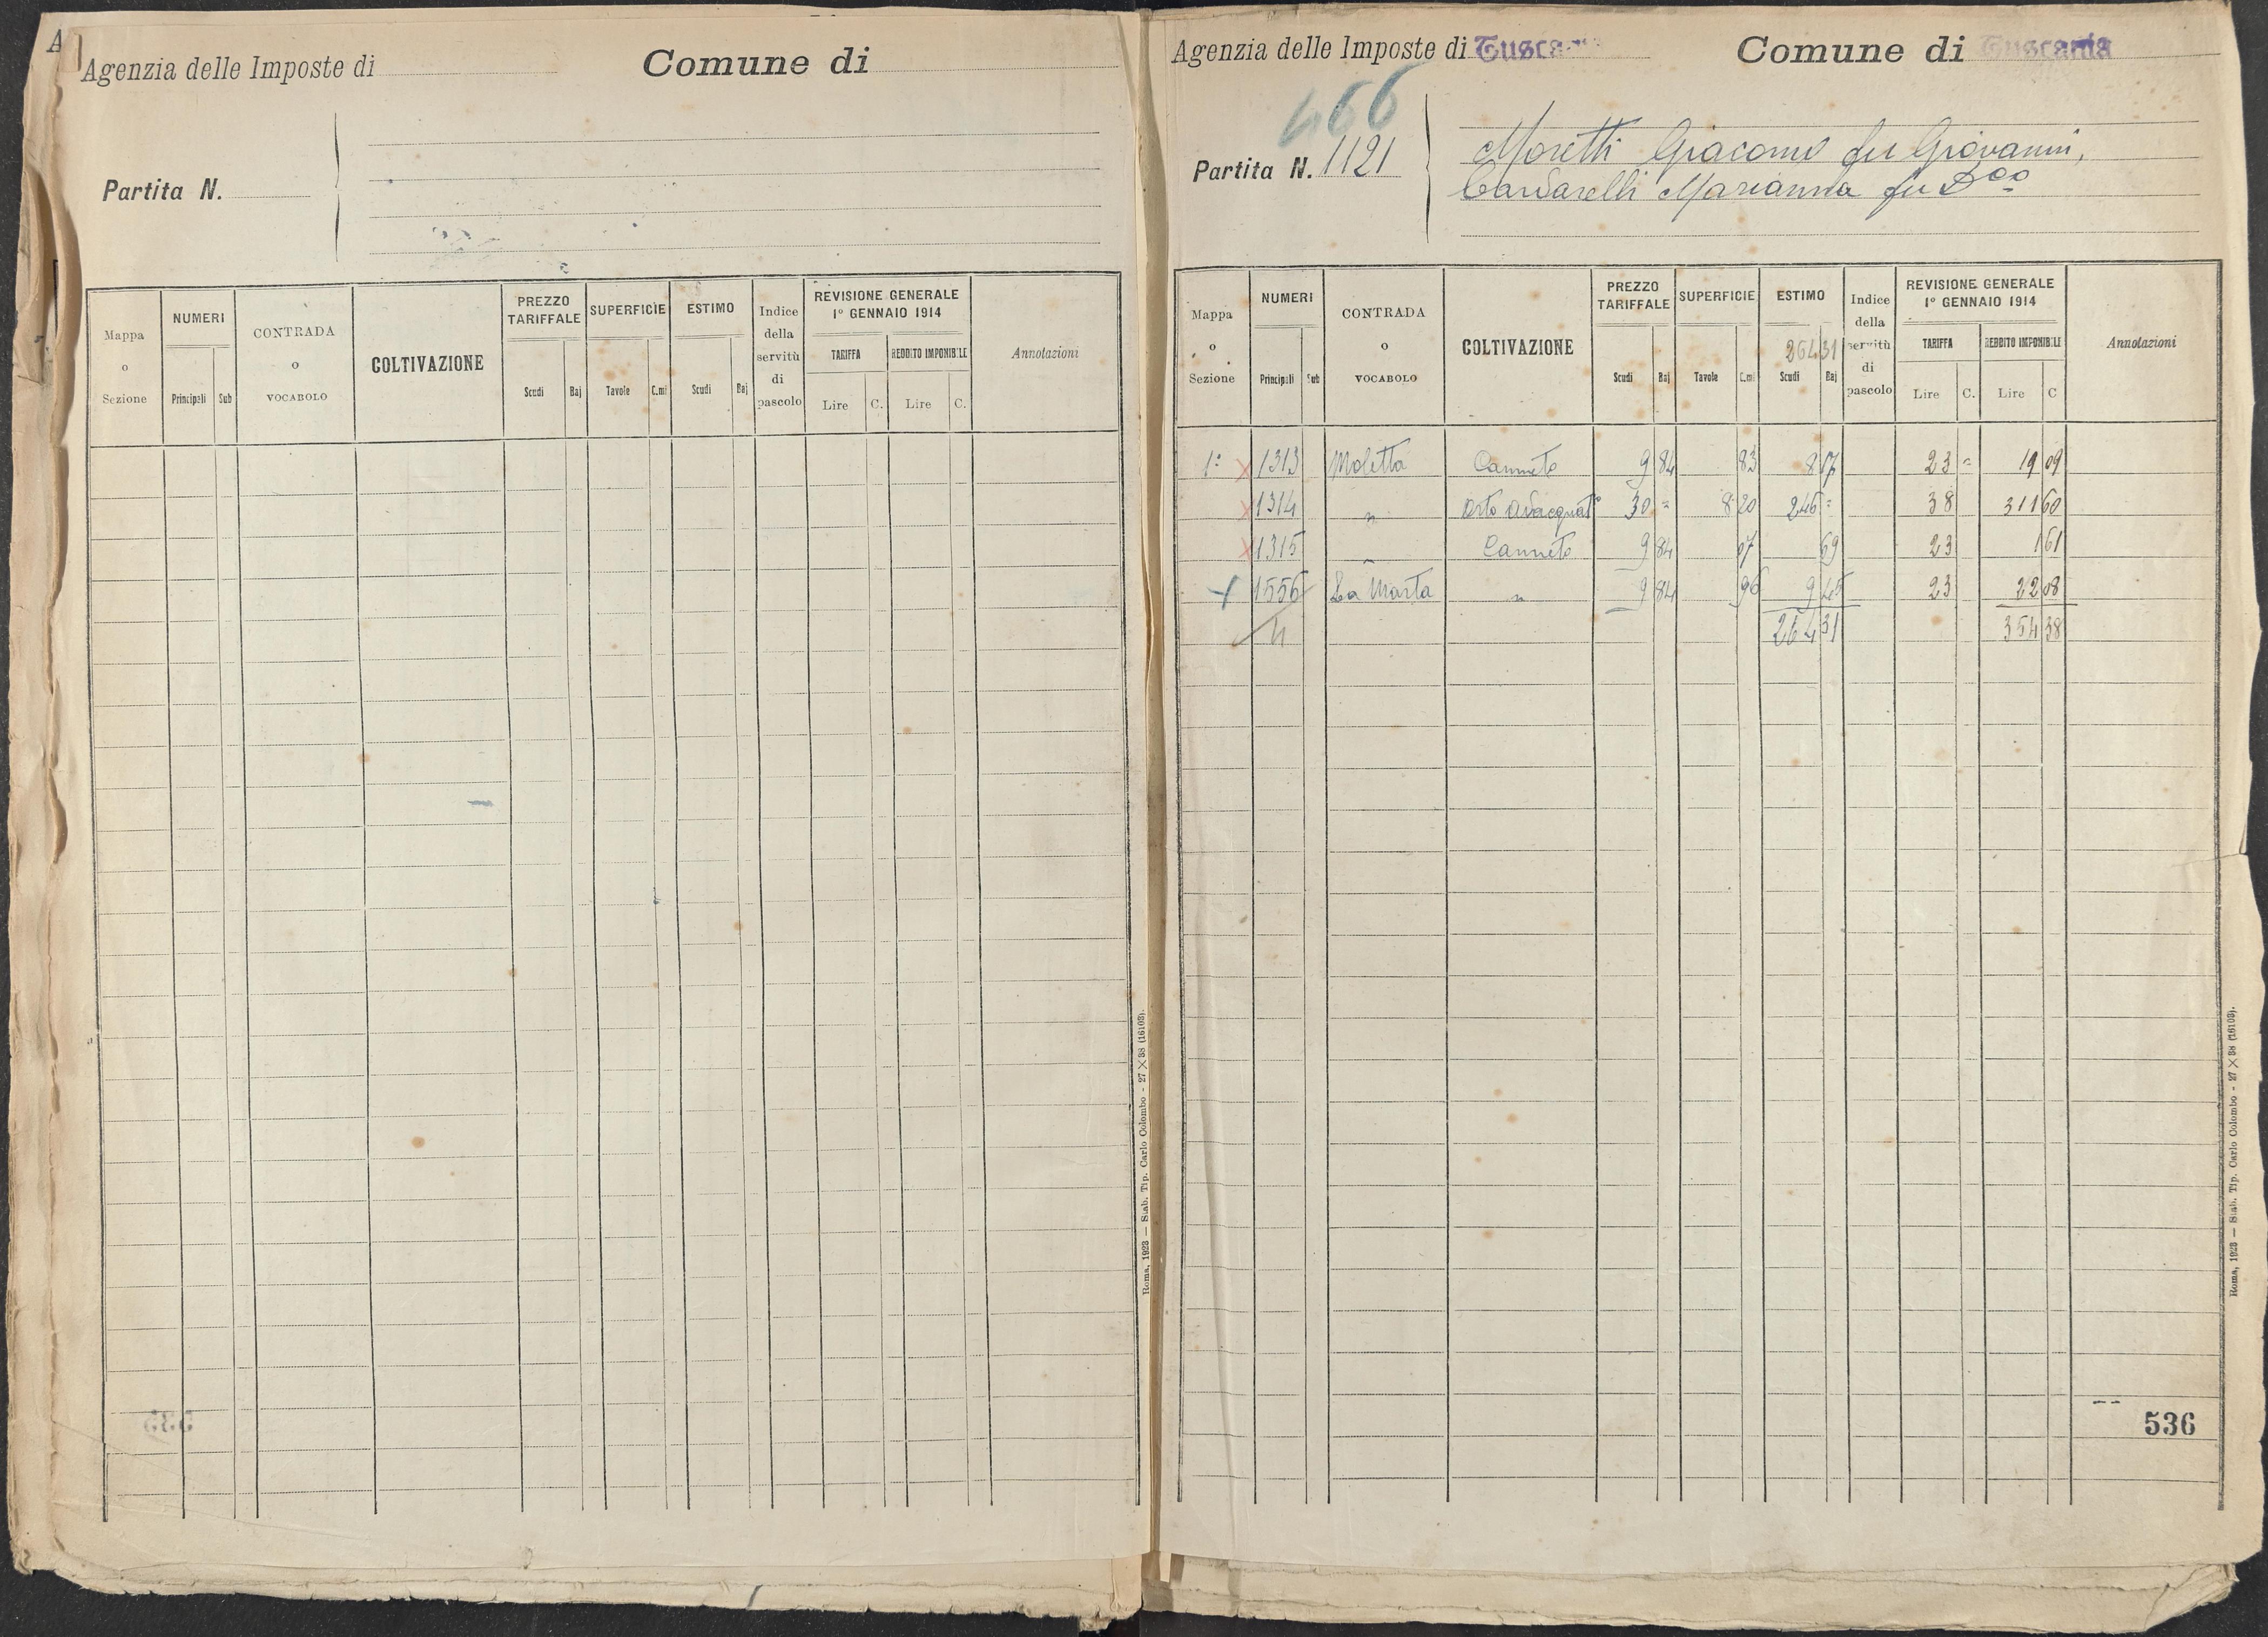 A
Agenzia delle Imposte di
Comune di
Partita N.
Mappa o Sezione
NUMERI
Principali
Sub
CONTRADA o VOCABOLO
COLTIVAZIONE
PREZZO TARIFFALE
Scudi
Baj
SUPERFICIE
Tavole
C.mi
ESTIMO
Scudi
Baj
Indice della servitù di pascolo
REVISIONE GENERALE
1° GENNAIO 1914
TARIFFA
Lire
C.
REDDITO IMPONIBILE
Lire
C.
Annotazioni
Roma, 1923 — Stab. Tip. Carlo Colombo - 27 X 38 (16103).
Agenzia delle Imposte di Tuscania
Comune di Tuscania
466
Partita N. 1121
Moretti Giacomo fu Giovanni,
Cardarelli Marianna fu Dco
Mappa o Sezione
NUMERI
Principali
Sub
CONTRADA o VOCABOLO
COLTIVAZIONE
PREZZO TARIFFALE
Scudi
Baj
SUPERFICIE
Tavole
C.mi
ESTIMO
264 31
Scudi
Baj
Indice della servitù di pascolo
REVISIONE GENERALE
1° GENNAIO 1914
TARIFFA
Lire
C.
REDDITO IMPONIBILE
Lire
C
Annotazioni
1a x 1313 Moletta Canneto 9 84 83 8 17 23 = 19 09
x 1314 " Orto adacquato 30 = 8 20 246 = 38 311 60
x 1315 " Canneto 9 84 07 69 23 1 61
x 1556 La Marta " 9 84 96 9 45 23 22 08
4 264 31 354 38
536
Roma, 1923 — Stab. Tip. Carlo Colombo - 27 X 38 (16103).